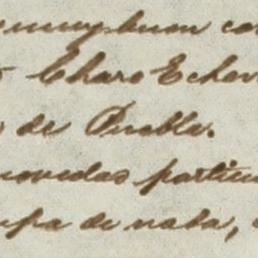 muy buen ca
Charo Echev
de Puebla.
novedas particu
upa de nada,